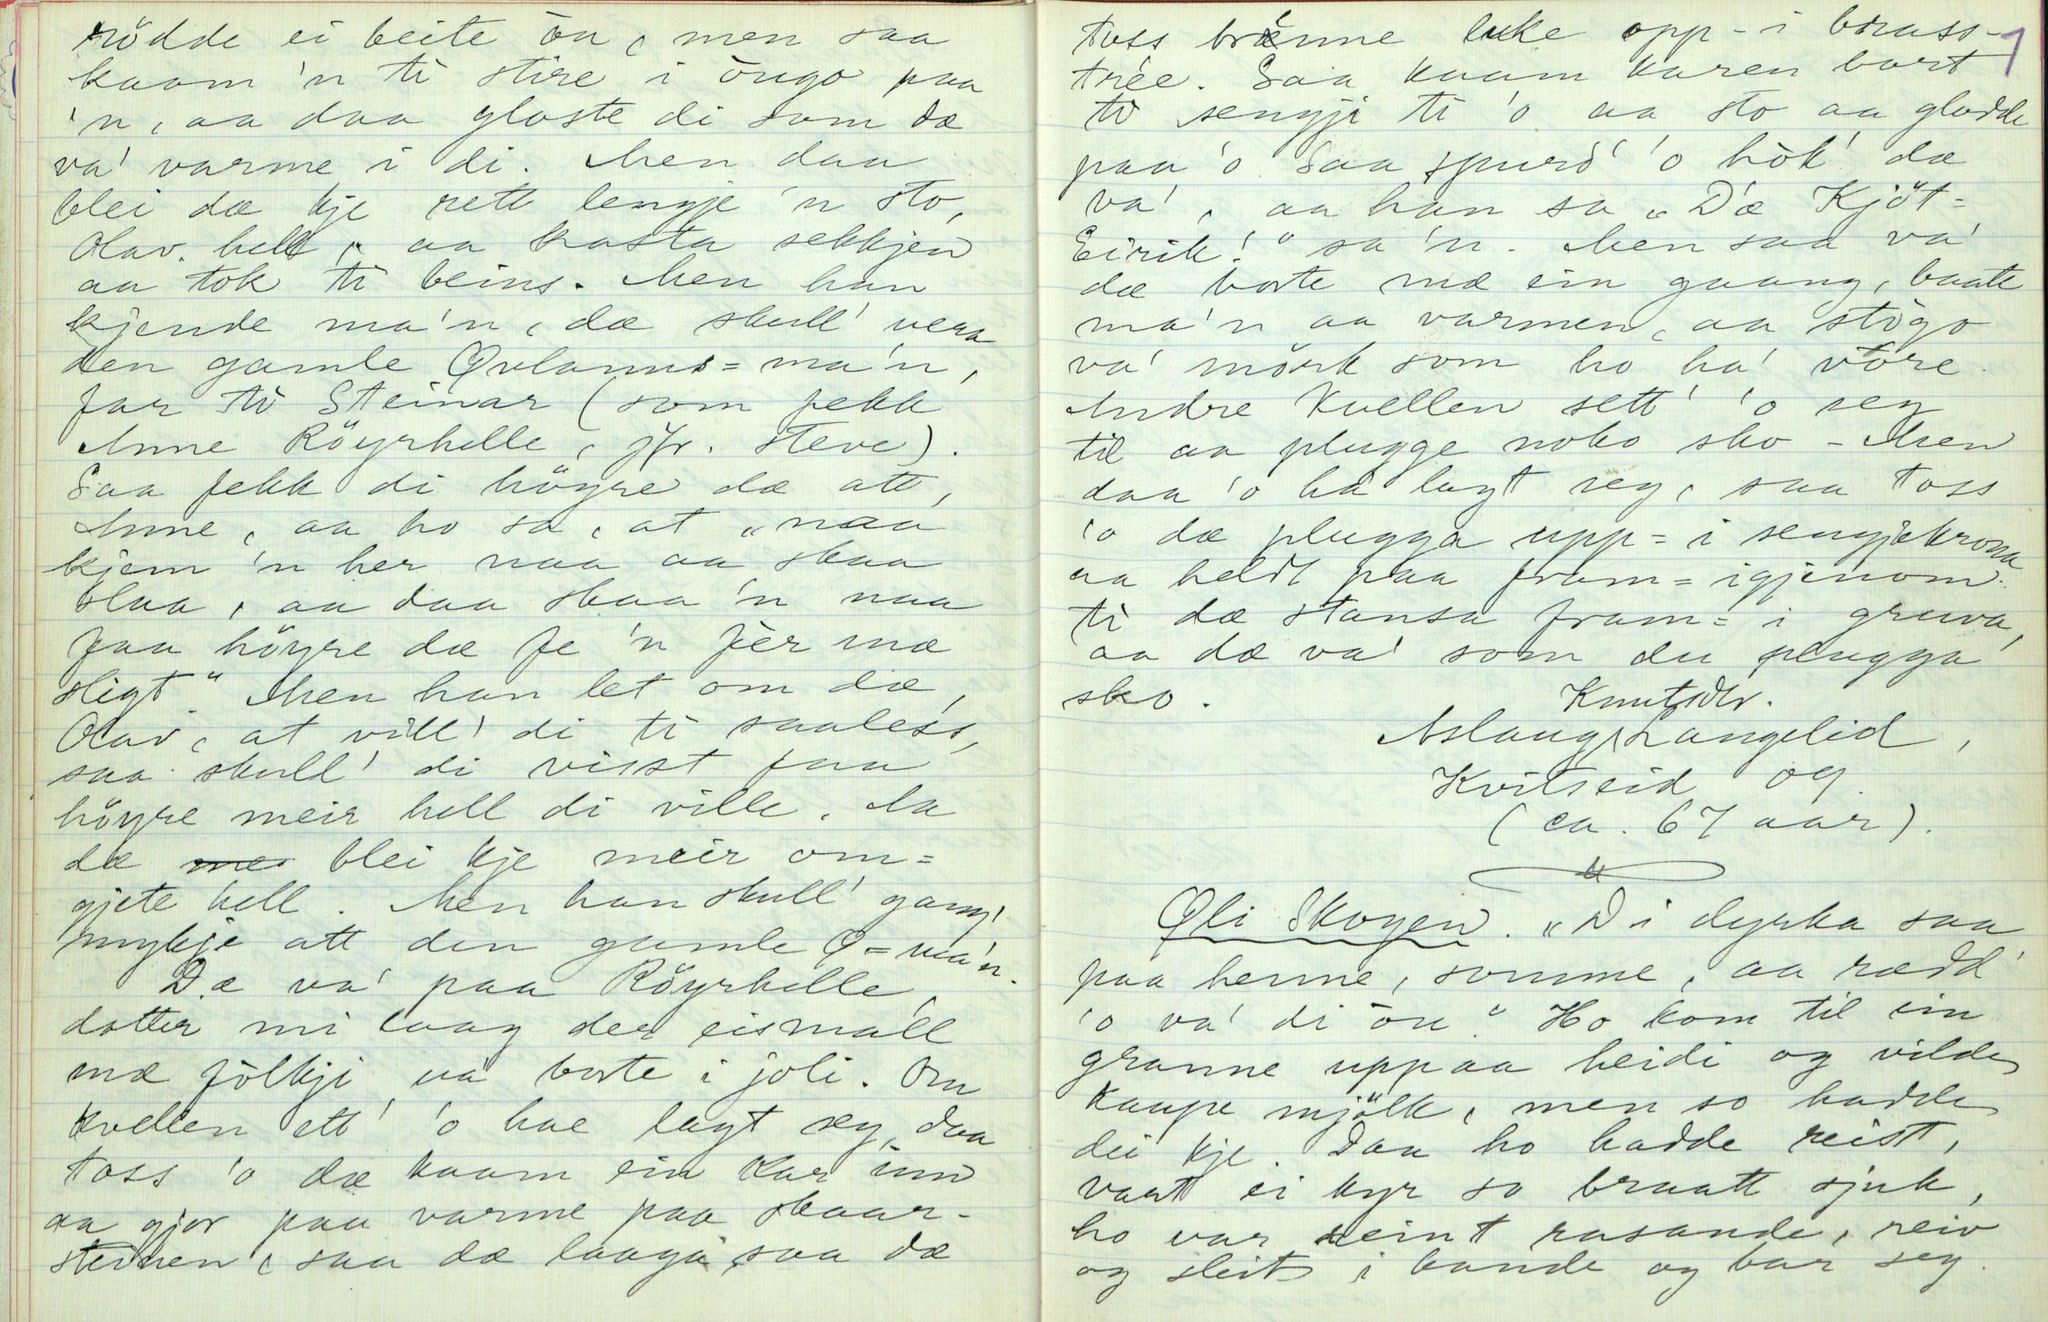 rödde ei beite ön, men saa
kaam 'n ti stire i öugo paa
'n, aa daa gloste di som dæ
va' varme i di. Men daa
blei dæ kje rett lengje 'n sto,
Olav. hell, aa kasta sekkjen
aa tok ti beins. Men han
kjende ma'n, dæ skull' vera
den gamle Øvlanns-ma'n,
far ti Steinar (som fekk
Anne Röyrhelle, jfr. steve).
Saa fekk di höyre dæ att,
Anne, aa ho sa, at „naa
kjem 'n her naa aa skaa
slaa, aa daa skaa 'n naa
faa höyre dæ fe 'n fèr mæ
sligt." Men han let om dæ,
Olav, at vill' di ti saaless,
saa skull' di visst faa
höyre meir hell di ville. Aa
dæ blei kje meir om-
gjete hell. Men han skull' gang'
mykje att den gamle Ø-ma'n.
Dæ va' paa Röyrhelle,
dotter mi laag der eismall
mæ fölkji va borte i joli. Om
kvellen ett' 'o hae lagt seg, daa
toss 'o dæ kaam ein kar inn
aa gjor paa varme paa skaar-
steinen, saa dæ laaga, saa dæ
toss brænne like opp-i brass-
trée. Saa kaam karen bort
ti sengji ti 'o aa sto aa glodde
paa 'o. Saa spurd' 'o hòk' dæ
va', aa han sa „D'æ Kjöt-
Eirik!" sa 'n. Men saa va'
dæ borte mæ ein gaang, baate
ma'n aa varmen, aa stögo
va' mörk som ho ha' vöre.
Andre kvellen sett' 'o seg
til aa plugge noko sko - Men
daa 'o ha lagt seg, saa toss
'o dæ plugga upp-i sengjekrona
aa heldt paa fram-igjenom
ti dæ stansa fram-i gruva,
aa dæ va' som du plugga
sko.
Knutsdtr.
Aslaug Langelid,
Kvitseid og
(ca. 67 aar).
Øli Skogen. „Di dyrka saa
paa henne, somme, aa rædd'
'o va' di ön." Ho kom til ein
granne uppaa heidi og vilde
kaupe mjölk, men so hadde
dei kje. Daa ho hadde reist,
vart ei kyr so braatt sjuk,
ho var reint rasande, reiv
og sleit i bande og bar seg.
1